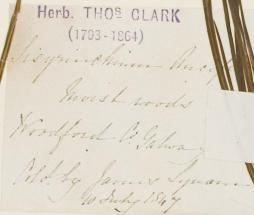 Herb. THOS CLARK
(1793-1864)
Sisyrinchium
Moist woods
Woodford Co Galway
by James Lynam
10 July 1847